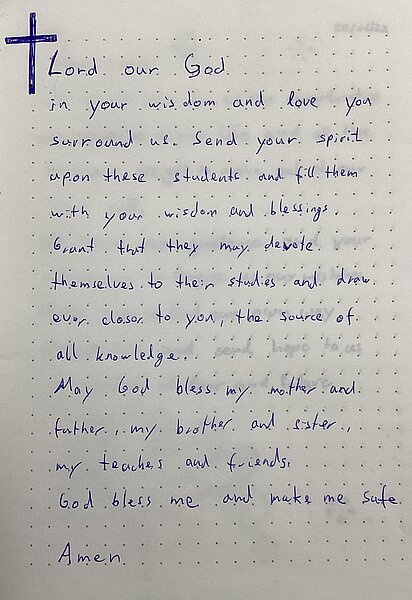 Lord our God
in your wisdom and love you
surround us. Send your spirit
upon these students and fill them
with your wisdom and blessings.
Grant that they may devote
themselves to their studies and draw
ever closer to you, the source of
all knowledge.
May God bless my mother and
father, my brother and sister,
my teachers and friends.
God bless me and make me safe.
Amen